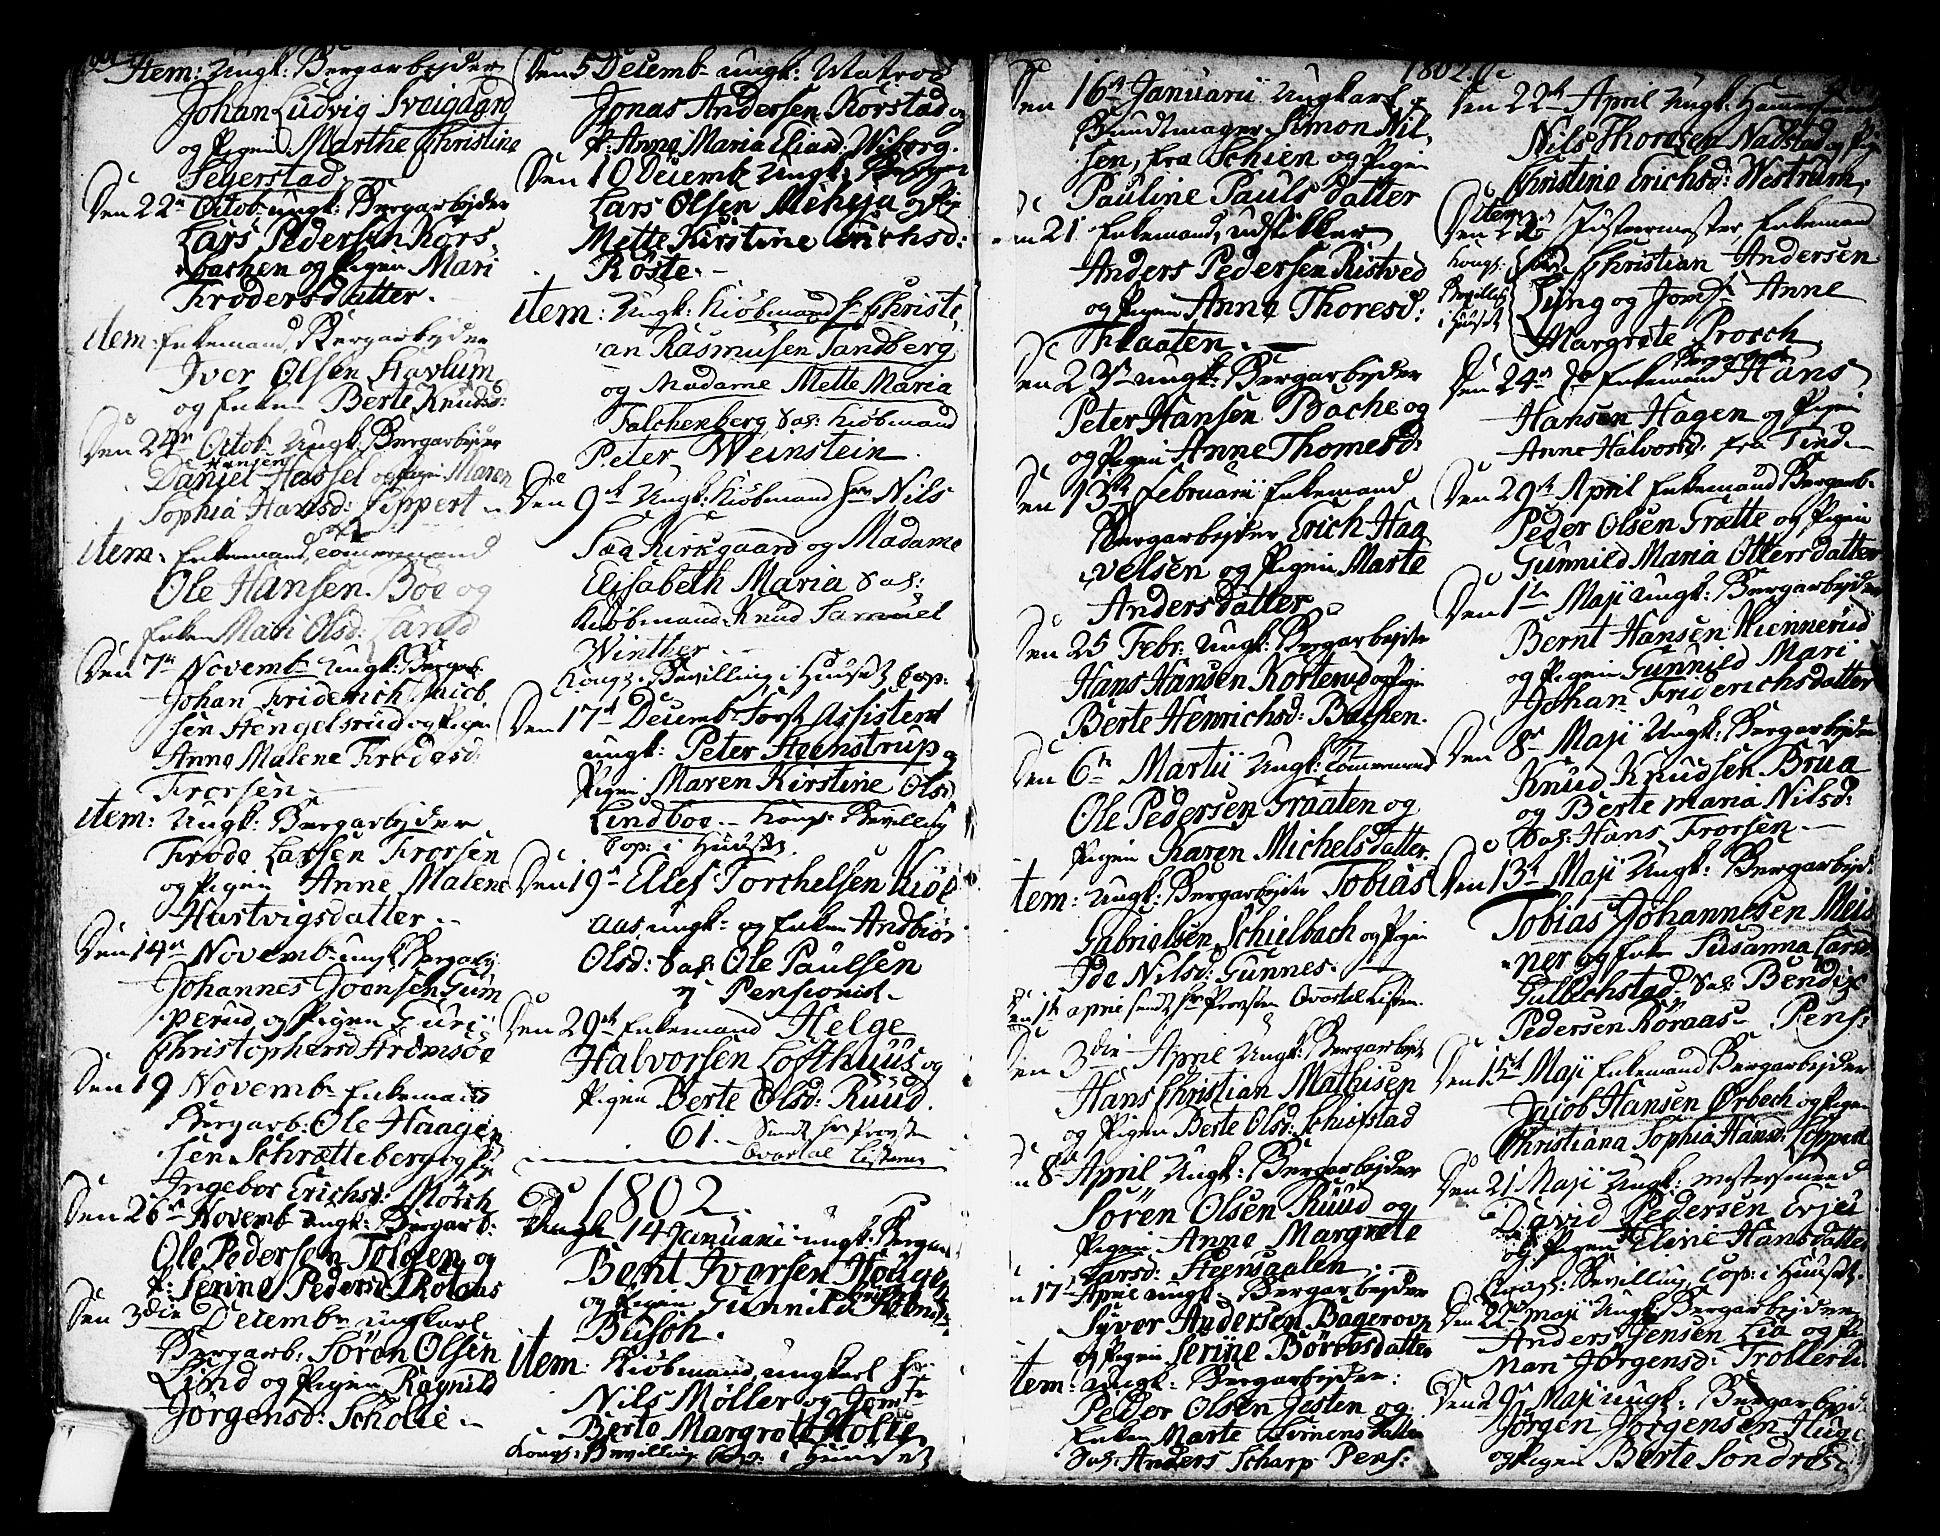 Item: Ungk: Bergarbejder
Johan Ludvig Svaigaard
og Pigen Marthe Christine
Sejerstad.
Den 22n Octob. ungk: Bergarbejder
Lars Pedersen Kors,
bachen og Pigen Mari
Frodersdatter.
item: Enkemand, Bergarbejder
Iver Olsen Havlum
og Enken Berte Knudsd:
Den 24n Octob. Ungk: Bergarbejder
Hansen
Daniel Hassel og Pigen Maren
Sophia Hansd: Seppert
item: Enkemand, Tömermand
Ole Hansen Boe og
Enken Mari Olsd:
Den 7n Novemb. Ungk: Bergarb.
Johan Friderich Jacob,
sen Hengelsrud og Pigen
Anne Malene Frodesd:
Frorsen
item: Ungk: Bergarbejder
Frode Larsen Frorsen
og Pigen Anne Malene
Hartvigsdatter.
Den 14n Novemb. ungk: Bergarbj
Johannes Joensen Gum
perud og Pigen Guri
Christophersd Strömsöe
Den 19 Novemb. Enkemand
Bergarb: Ole Haagen
sen Schrætteberg og P.
Ingebor Erichsd: Mörch
Den 26n Novemb. Ungk: Bergarb:
Ole Pedersen Tolgen og
P: Serine Pedersd Rolaas
Den 3die Decemb. ungkarl
Bergarb: Sören Olsen
Lind og Pigen Ragnild
Jörgensd: Scholte
Den 5 Decemb. ungk: Matros
Jonas Andersen Korstad og
P: Anne Maria Eliasd: Wiborg.
Den 10 Decemb. Ungk: Bergar
Lars Olsen Meheja og Pig
Mette Kirstine Erichsd:
Röste.
item: Ungk: Kiöbmand Hr Christi,
an Rasmusen Sandberg
og Madame Mette Maria
Falchenberg, Sal: Kiöbmand
Peter Weinstein
Den 9n Ungk: Kiöbmand Hr Nils
Kirkgaard og Madame
Elisabeth Maria Sal:
Kiöbmand Knud Samuel
Winther
Kongs: Bevilling i Huuset Cop:
Den 17 Decemb. Forst Assistent
ungk: Peter Steenstrup og
Pigen Maren Kirstine Olsd
Lindboe. Kongs: Bevilling
Cop: i Huuset.
Den 19n Elles Torchelsen Kiöl
aas, ungk: og Enken Andbiör
Olsd: Sal: Ole Paulsen
Pensionist.
Den 29n Enkemand Helge
Halvorsen Lofthuus og
Pigen Berte Olsd: Ruud.
61. Sendt Hr Provsten
Qvartal Listerne
1802.
14 Januarii ungk: Bergar
Bent Iversen Houge
og Pigen Gunnild
Busch.
item. Kiöbmand, ungkarl Hr
Nils Møller og Jomfr
Berte Margrete Holte,
Kongs: Bevilling Cop: i Huuset
1802.
Den 16n Januarii Ungkarl,
Bundtmager Simon Nil,
sen, fra Schien og Pigen
Pauline Pauls datter
Den 21 Enkemand, udstikker
Anders Pedersen Ristved
og Pigen Anne Thoresd:
Flaaten.
Den 2 ungk: Bergarbejder
Peter Hansen Bache og
og Pigen Anne Thomesd:
Den 13n Februarii Enkemand
Bergarbejder Erich Haa
velsen og Pigen Marte
Andersdatter
Den 25 Febr: Ungk: Bergarbejder
Hans Hansen Korterud og Pigen
Berte Henrichsd: Bachen.
Den 6te Martii Ungk: Tömermand
Ole Pedersen Graaten og
Pigen Karen Michelsdatter.
Item: Ungk: Bergarbejder Tobias
Gabrielsen Schielbach og Pigen
Ide Nilsd: Gunnes.
Den 1te april sendt Hr Provsten Qvartal Listen.
Den 3die April Ungk: Bergarbejder
Hans Christian Mathisen
og Pigen Berte Olsd: Schiefstad
Den 8de April Ungk: Bergarbejder
Sören Olsen Ruud og
Pigen Anne Margrete
Larsd: Steensaalen.
Den 17 April ungk: Bergarbejder
Syver Andersen Bagerovn
og Pigen Serine Börresdatter
item: Ungk: Bergarbejder:
Peder Olsen Jesten og
Enken Marte Simensdatter
Sal: Anders Scharp Pens:
Den 22n April Ungk:
Nils Thorssen Nadstad og Pigen
Christine Erichsd: Westrum
item
Den 22 Pustermester, Enkemand
Kongs: Christian Andersen
Bevilling Ljüng og Jomfr Anne
i Huuset Margrete Prosch
Bergarbejder
Den 24n do Enkemand Hans
Hansen Hagen og Pigen
Anne Halvorsd: fra Tind
Den 29n April Enkemand Bergarb.
Peder Olsen Grætte og Pigen
Gunnild Maria Ottersdatter
Den 1te Maji Ungk: Bergarbejder
Bernt Hansen Hiennerud
og Pigen Gunnild Mari
Johan Friderichsdatter
Den 8n Maji Ungk: Bergarbejder
Knud Knudsen Brua
og Berte Maria Nilsd:
Sal: Hans Frorsen.
Den 13n Maji Ungk: Bergarbejd:
Tobias Johannesen Meis
ner og Enke Susanna Larsd:
Gulbechstad. Sal: Bendix
Pedersen Röraas Pens:
Den 15n Maji Enkemand Bergarbejder
Jacob Hansen Ørbech og Pigen
Christiana Sophia Hansd: Seppert
Den 21 Maji Ungk: mestersvend
David Pedersen
og Pigen Eline Hansdatter
Kongs: Bevilling, Cop: i Huuset.
Den 22n Maji Ungk: Bergarbejder
Anders Jensen Lia og Pi
Mari Jörgensd: Trollerud
Den 29n Maji ungk: Bergarbejd:
Jörgen Jörgensen Huge
og Pigen Berte Sondresd